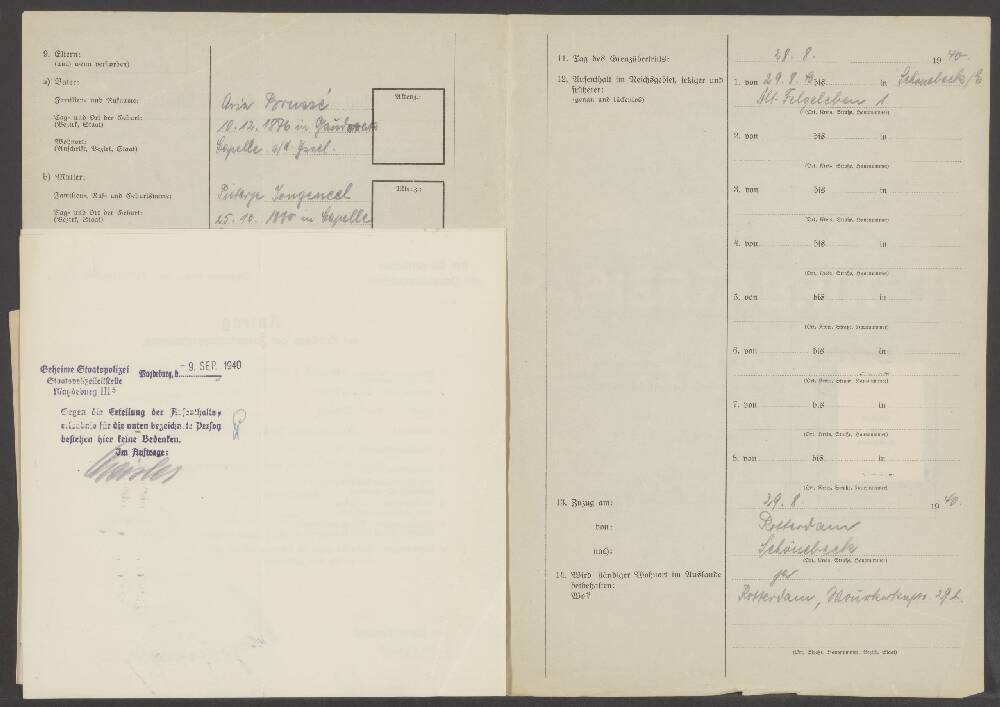 9. Eltern:
(auch wenn verstorben)
a) Vater:
Familien- und Rufname:
Arie Brussé
Tag- und Ort der Geburt:
(Bezirk, Staat)
10.12.1876 in
Wohnort:
(Anschrift, Bezirk, Staat)
Capelle a/d Yssel.
Aktenz.:
b) Mutter:
Familien-, Ruf- und Geburtsname:
Pietertje Jongeneel
Tag- und Ort der Geburt:
(Bezirk, Staat)
25.10. 1880 in Capelle
Aktenz.:
Geheime Staatspolizei
Staatspolizeileitstelle
Magdeburg III
Magdeburg, d. - 9. SEP. 1940
Gegen die Erteilung der Aufenthalts-
erlaubnis für die unten bezeichnete Person
bestehen hier keine Bedenken.
Im Auftrage:
11. Tag des Grenzübertritts:
28. 8. 1940
12. Aufenthalt im Reichsgebiet, jetziger und
früherer:
(genau und lückenlos)
1. von 29.8.40 bis in Schönebeck/E
Alt Felgeleben 1.
(Ort, Kreis, Straße, Hausnummer)
2. von bis in
(Ort, Kreis, Straße, Hausnummer)
3. von bis in
(Ort, Kreis, Straße, Hausnummer)
4. von bis in
(Ort, Kreis, Straße, Hausnummer)
5. von bis in
(Ort, Kreis, Straße, Hausnummer)
6. von bis in
(Ort, Kreis, Straße, Hausnummer)
7. von bis in
(Ort, Kreis, Straße, Hausnummer)
8. von bis in
(Ort, Kreis, Straße, Hausnummer)
13. Zuzug am:
29. 8 1940.
von:
Rotterdam
nach:
Schönebeck
(Ort, Kreis, Straße, Hausnummer)
14. Wird ständiger Wohnort im Auslande
beibehalten:
Wo?
Rotterdam, 29 b.
(Ort, Straße, Hausnummer, Bezirk, Staat)